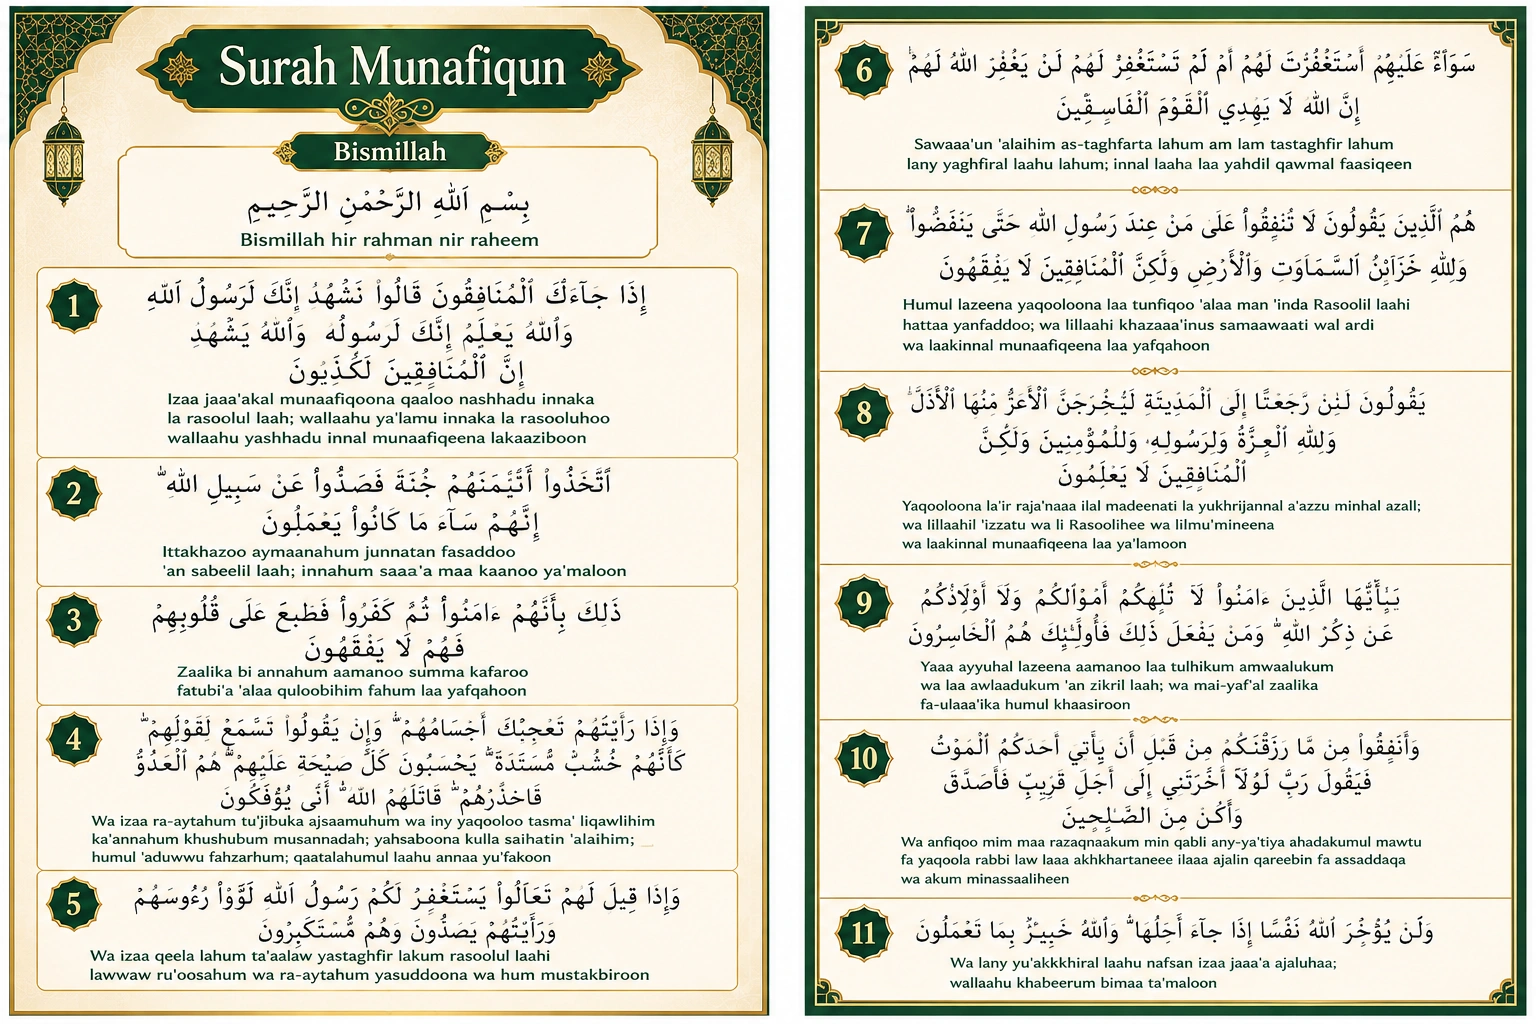 Surah Munafiqun
Bismillah
بِسْمِ اَللهِ الرَّحْمٰنِ الرَّحِيمِ
Bismillah hir rahman nir raheem
1
إِذَا جَآءَكَ ٱلْمُنَافِقُونَ قَالُوا۟ نَشْهَدُ إِنَّكَ لَرَسُولُ اَللهِ
وَٱللهُ يَعْلَمُ إِنَّكَ لَرَسُولُهُ وَٱللهُ يَشْهَدُ
إِنَّ ٱلْمُنَافِقِينَ
Izaa jaaa'akal munaafiqoona qaaloo nashhadu innaka
la rasoolul laah; wallaahu ya'lamu innaka la rasooluhoo
wallaahu yashhadu innal munaafiqeena lakaaziboon
2
عَنْ سَبِيلِ اللهِ
إِنَّهُمْ سَآءَ مَا كَانُوا۟ يَعْمَلُونَ
Ittakhazoo aymaanahum junnatan fasaddoo
'an sabeelil laah; innahum saaa'a maa kaanoo ya'maloon
3
ذَلِكَ بِأَنَّهُمْ ءَامَنُوا۟ ثُمَّ كَفَرُوا۟ فَطَبعَ عَلَى قُلُوبِهِمْ
فَهُمْ لَا يَفْقَهُونَ
Zaalika bi annahum aamanoo summa kafaroo
fatubi'a 'alaa quloobihim fahum laa yafqahoon
4
وَإِذَا رَأَيْتَهُمْ تَعْجِبْكَ أَجْسَامُهُمْ وَإِنْ يَقُولُوا۟ تَسَّمَعْ لِقَوْلِهِمْ
كَأَنَّهُمْ خُشُبٌ مُّسَنَّدَةٌ يَحْسَبُونَ كَلَّ صَيْحَةٍ عَلَيْهِمْ هُمُ ٱلْعَدُوُّ
قَاتَلَهُمْ اللهُ أَنَّى يُؤْفَكُونَ
Wa izaa ra-aytahum tu'jibuka ajsaamuhum wa iny yaqooloo tasma' liqawlihim
ka'annahum khushubum musannadah; yahsaboona kulla saihatin 'alaihim;
humul 'aduwwu fahzarhum; qaatalahumul laahu annaa yu'fakoon
5
وَإِذَا قِيلَ لَهُمْ تَعَالَوْا۟ يَسْتَغْفِرْ لَكُمْ رَسُولُ اَللهِ لَوَّوْا۟ رُءُوسَهُمْ
وَرَأَيْتُهُمْ يَصَدُّونَ وَهُمْ مُّسْتَكْبِرُونَ
Wa izaa qeela lahum ta'aalaw yastaghfir lakum rasoolul laahi
lawwaw ru'oosahum wa ra-aytahum yasuddoona wa hum mustakbiroon
6
سَوَآءٌ عَلَيْهِمْ أَسْتَغْفَرْتَ لَهُمْ أَمْ لَمْ تَسْتَغْفِرْ لَهُمْ لَنْ يَغْفِرَ اللهُ لَهُمْ
إِنَّ اللهَ لَا يَهْدِي ٱلْقَوْمَ ٱلْفَاسِقِينَ
Sawaaa'un 'alaihim as-taghfarta lahum am lam tastaghfir lahum
lany yaghfiral laahu lahum; innal laaha laa yahdil qawmal faasiqeen
7
هُمُ ٱلَّذِينَ يَقُولُونَ لَا تُنْفِقُوا۟ عَلَى مَنْ عِندَ رَسُولِ اللهِ حَتَّى يَنْفَضُّوا۟
وَلِلهِ خَزَآئِنُ اَلسَّمَاوَتِ وَٱلْأَرْضِ وَلَكِنَّ ٱلْمُنَافِقِينَ لَا يَفْقَهُونَ
Humul lazeena yaqooloona laa tunfiqoo 'alaa man 'inda Rasoolil laahi
hattaa yanfaddoo; wa lillaahi khazaaa'inus samaawaati wal ardi
wa laakinnal munaafiqeena laa yafqahoon
8
يَقُولُونَ لَئِنْ رَّجَعْنَا إِلَى ٱلْمَدِينَةِ لَيُخْرِجَنَّ ٱلْأَعَزُّ مِنْهَا ٱلْأَذَلَّ
وَلِلهِ ٱلْعِزَّةُ وَلِرَسُولِهِ وَلِلْمُؤْمِنِينَ وَلَكِنَّ
ٱلْمُنَافِقِينَ لَا يَعْلَمُونَ
Yaqooloona la'ir raja'naaa ilal madeenati la yukhrijannal a'azzu minhal azall;
wa lillaahil 'izzatu wa li Rasoolihee wa lilmu'mineena
wa laakinnal munaafiqeena laa ya'lamoon
9
يَـٰٓأَيُّهَا ٱلَّذِينَ ءَامَنُوا۟ لَا تُلْهِكُمْ أَمْوَٰلُكُمْ وَلَآ أَوْلَادُكُمْ
عَن ذِكْرِ اللهِ وَمَنْ يَفْعَلْ ذَلِكَ فَأُولَـٰٓئِكَ هُمُ ٱلْخَاسِرُونَ
Yaaa ayyuhal lazeena aamanoo laa tulhikum amwaalukum
wa laa awlaadukum 'an zikril laah; wa mai-yaf'al zaalika
fa-ulaaa'ika humul khaasiroon
10
وَأَنفِقُوا۟ مِنْ مَّا رَزَقْنَكُمْ مِنْ قَبْلِ أَن يَأْتِيَ أَحَدَكُمُ ٱلْمَوْتُ
فَيَقُولَ رَبِّ لَوْلَآ أَخَّرْتَنِي إِلَى أَجَلٍ قَرِيبٍ فَأَصَدَّقَ
وَأَكُنْ مِنَ الصَّـٰلِحِينَ
Wa anfiqoo mim maa razaqnaakum min qabli any-ya'tiya ahadakumul mawtu
fa yaqoola rabbi law laaa akhkhartaneee ilaaa ajalin qareebin fa assaddaqa
wa akum minassaaliheen
11
وَلَنْ يُؤَخِّرَ اللهُ نَفْسًا إِذَا جَآءَ أَجَلُهَا وَٱللهُ خَبِيرٌ بِمَا تَعْمَلُونَ
Wa lany yu'akkkhiral laahu nafsan izaa jaaa'a ajaluhaa;
wallaahu khabeerum bimaa ta'maloon